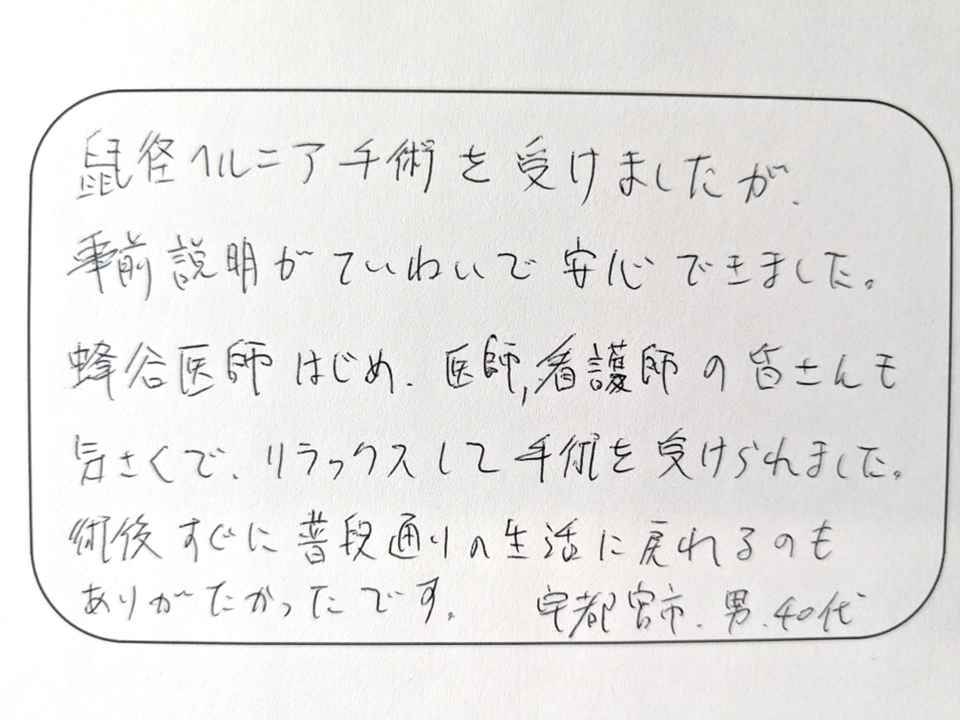 鼠径ヘルニア手術を受けましたが、
事前説明がていねいで安心できました。
蜂谷医師はじめ、医師,看護師の皆さんも
気さくで、リラックスして手術を受けられました。
術後すぐに普段通りの生活に戻れるのも
ありがたかったです。 宇都宮市、男、40代